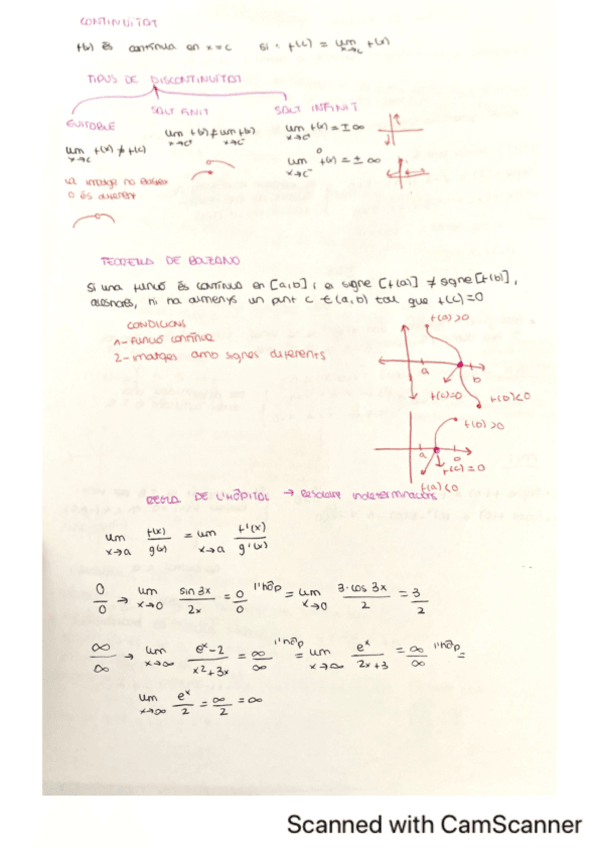 CONTINUÏTAT
f(x) és contínua en x=c si: f(c) = lim x→c f(x)
TIPUS DE DISCONTINUÏTAT
EVITABLE
lim x→c f(x) ≠ f(c)
La imatge no existeix
o és diferent
SALT FINIT
lim x→c⁺ f(x) ≠ lim x→c⁻ f(x)
SALT INFINIT
lim x→c⁺ f(x) = ±∞
o
lim x→c⁻ f(x) = ±∞
TEOREMA DE BOLZANO
Si una funció és contínua en [a,b] i el signe [f(a)] ≠ signe [f(b)],
aleshores, hi ha almenys un punt c ∈ (a,b) tal que f(c)=0
CONDICIONS
1- funció contínua
2- imatges amb signes diferents
f(a)>0
a
b
f(c)=0
f(b)<0
f(b)>0
a
b
f(c)=0
f(a)<0
REGLA DE L'HÔPITAL → Resoldre indeterminacions
lim x→a f(x)/g(x) = lim x→a f'(x)/g'(x)
0/0 → lim x→0 sin 3x/2x = 0/0 l'hôp = lim x→0 3·cos 3x/2 = 3/2
∞/∞ → lim x→∞ eˣ-2/x²+3x = ∞/∞ l'hôp = lim x→∞ eˣ/2x+3 = ∞/∞ l'hôp =
lim x→∞ eˣ/2 = ∞/2 = ∞
Scanned with CamScanner